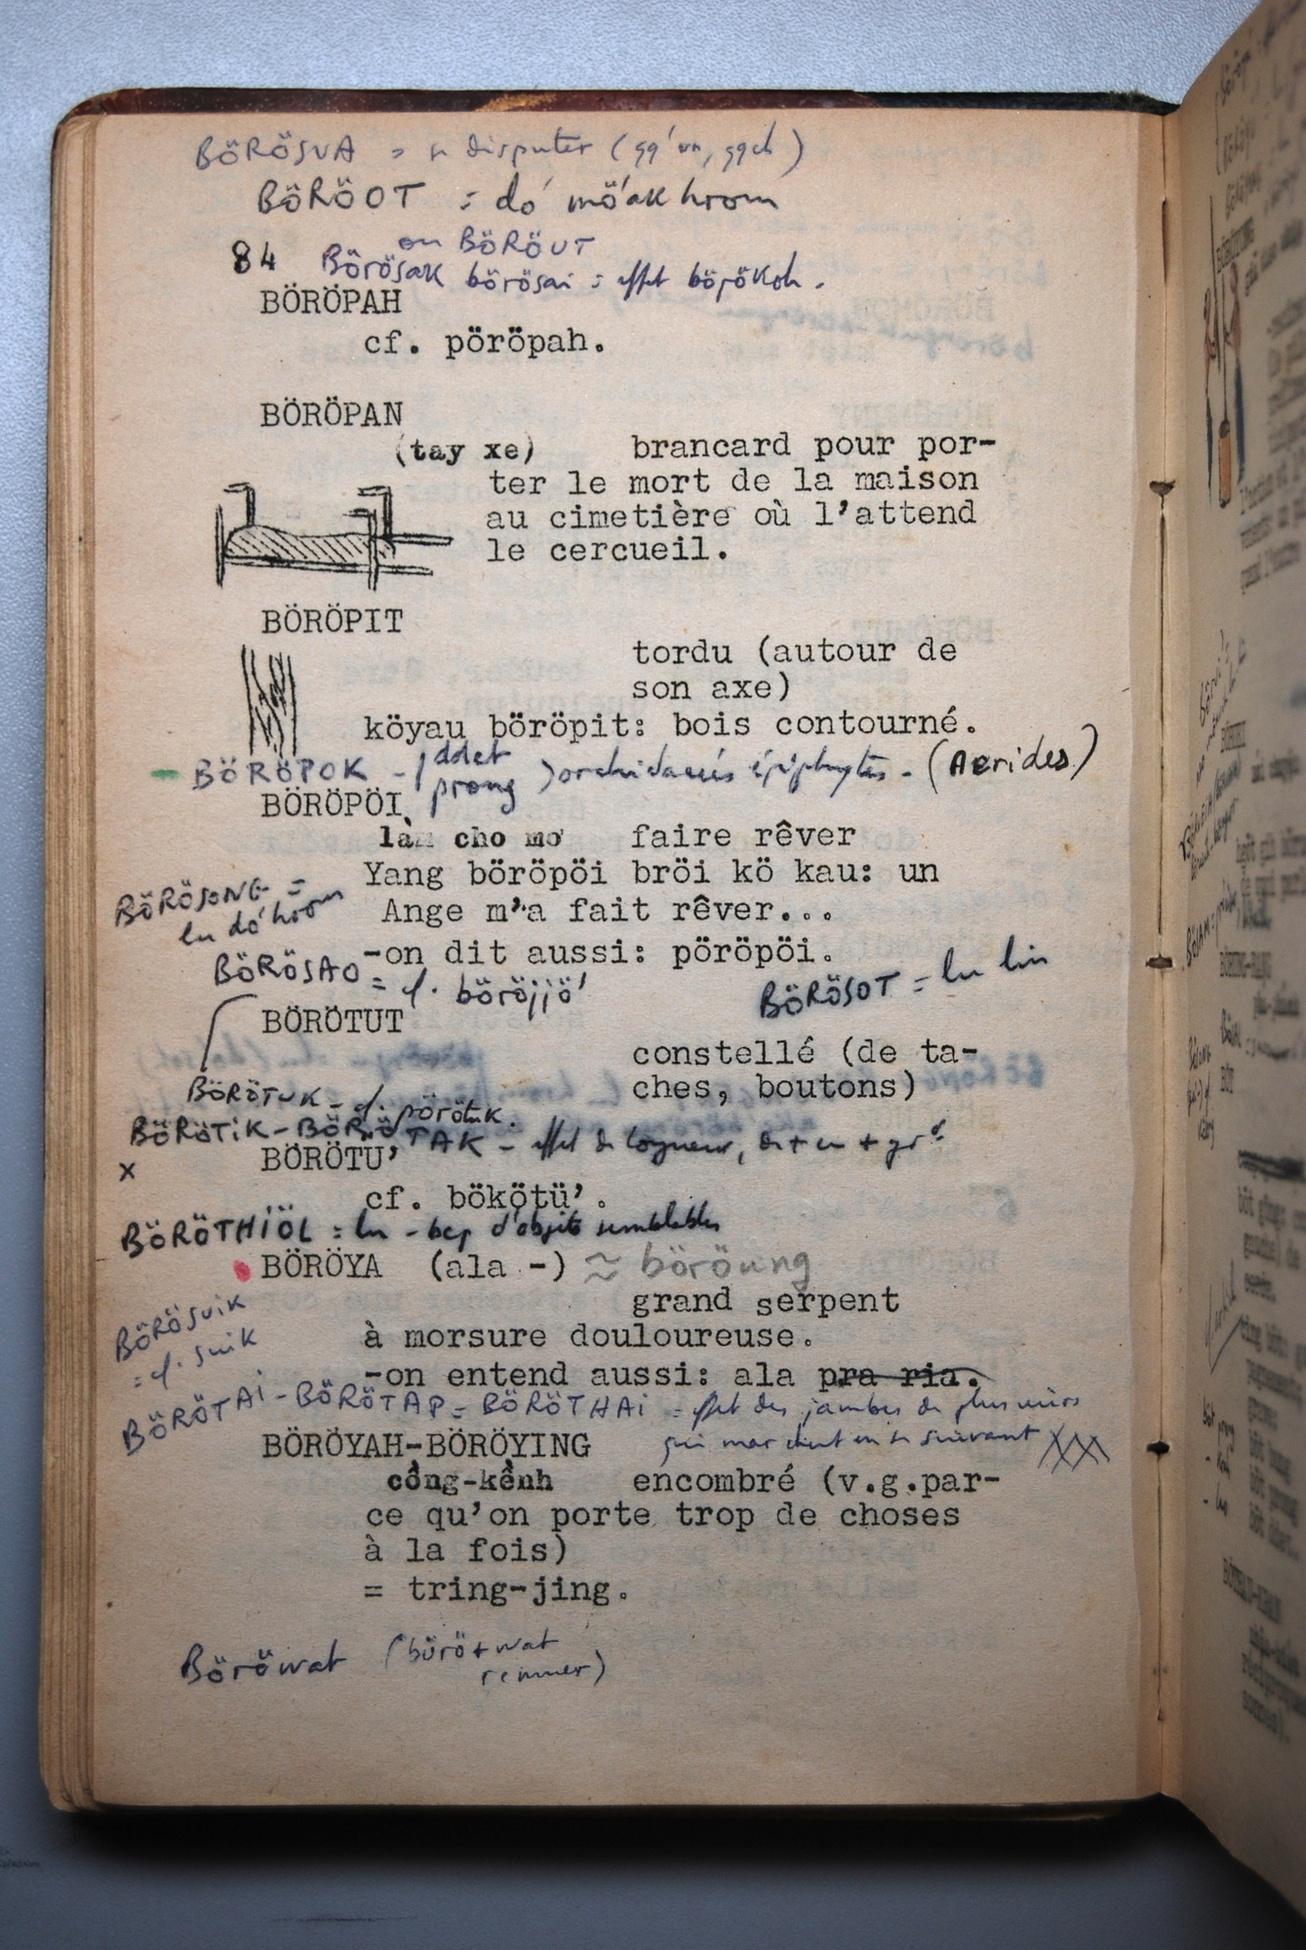 BÖRÖSVA = se disputer (qq'un, qqch)
BÖRÖOT = dó mö'ak hrom
84 ou BÖRÖUT
Börösak börösai = effet börökoh.
BÖRÖPAH
cf. pöröpah.
BÖRÖPAN
(tay xe) brancard pour por-
ter le mort de la maison
au cimetière où l'attend
le cercueil.
BÖRÖPIT
tordu (autour de
son axe)
köyau böröpit: bois contourné.
BÖRÖPOK - ddet
prong ) orchidacées épiphytes - (Aerides)
BÖRÖPÖI
làm cho mơ faire rêver
Yang böröpöi bröi kö kau: un
Ange m'a fait rêver...
BÖRÖSONG =
lu dó hrom
-on dit aussi: pöröpöi.
BÖRÖSAO = cf. böröjjö'
BÖRÖSOT = lu lin
BÖRÖTUT
constellé (de ta-
ches, boutons)
BÖRÖTUK - cf. pörötuk.
BÖRÖTIK-BÖRÖTAK - effet de longueur, de + en + grd
x BÖRÖTU'
cf. bökötü'.
BÖRÖTHIÖL = lu - bcp d'objets semblables
BÖRÖYA (ala -) ≈ böröung
grand serpent
à morsure douloureuse.
BÖRÖSUIK
= cf. suik
-on entend aussi: ala pra ria.
BÖRÖTAI - BÖRÖTAP = BÖRÖTHAI = effet des jambes de plusieurs
qui marchent en se suivant
BÖRÖYAH-BÖRÖYING
cồng-kềnh encombré (v.g.par-
ce qu'on porte trop de choses
à la fois)
= tring-jing.
Böröwat (börö + wat
remuer)